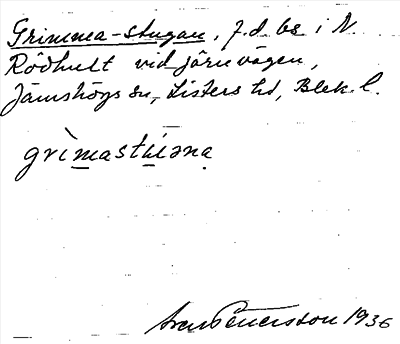 Grimma-stugan, f.d. bs. i N.
Rödhult vid järnvägen,
Jämshögs sn, Listers hd, Blek. l.
grìmastɯəna
Petersson 1936